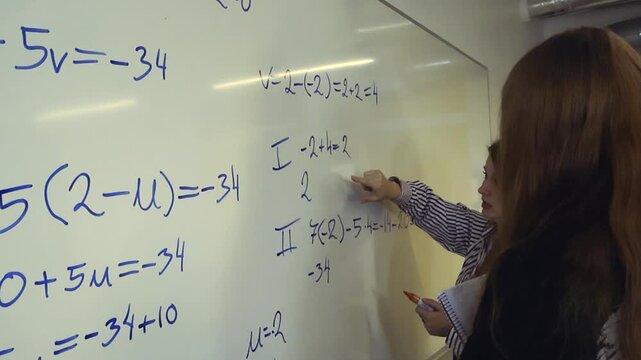 - 5v = -34
5(2 - u) = -34
0 + 5u = -34
= -34 + 10
v = 2 - (-2) = 2 + 2 = 4
I -2 + 4 = 2
2
II 7(-2) - 5·4 = -14 - 20
-34
u = -2